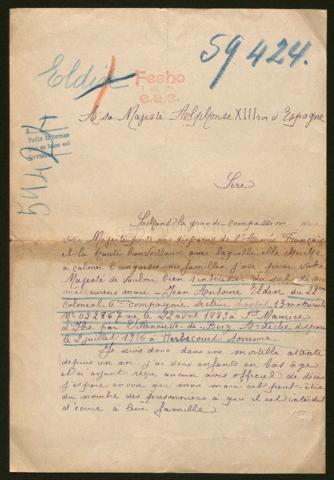 59424.
Eldin
Fecho
A Sa Majesté Alphonse XIII roi d'Espagne
59424
Sire
Sachant la grande compassion
votre Majesté porte aux disparus de l'Armée Française
et la haute bienveillance avec laquelle elle cherche
à calmer l'angoisse des familles, j'ose prier Votre
Majesté de vouloir bien s'intéresser du sort de mon
malheureux mari Jean Antoine Eldin du 22ème
colonial 6me compagnie secteur postal 13 matricule
No 032867 né le 22 avril 1883 à St Maurice
d'Ibie par Villeneuve-de-Berg Ardèche disparu
le 2 juillet 1916 à Herbécourt Somme.
Je suis donc dans une mortelle attente
depuis un an. J'ai deux enfants en bas âge
et n'ayant reçu aucun avis officiel de décès
j'espère encore que mon mari est peut-être
du nombre des prisonniers à qui il est interdit
d'écrire à leur famille.